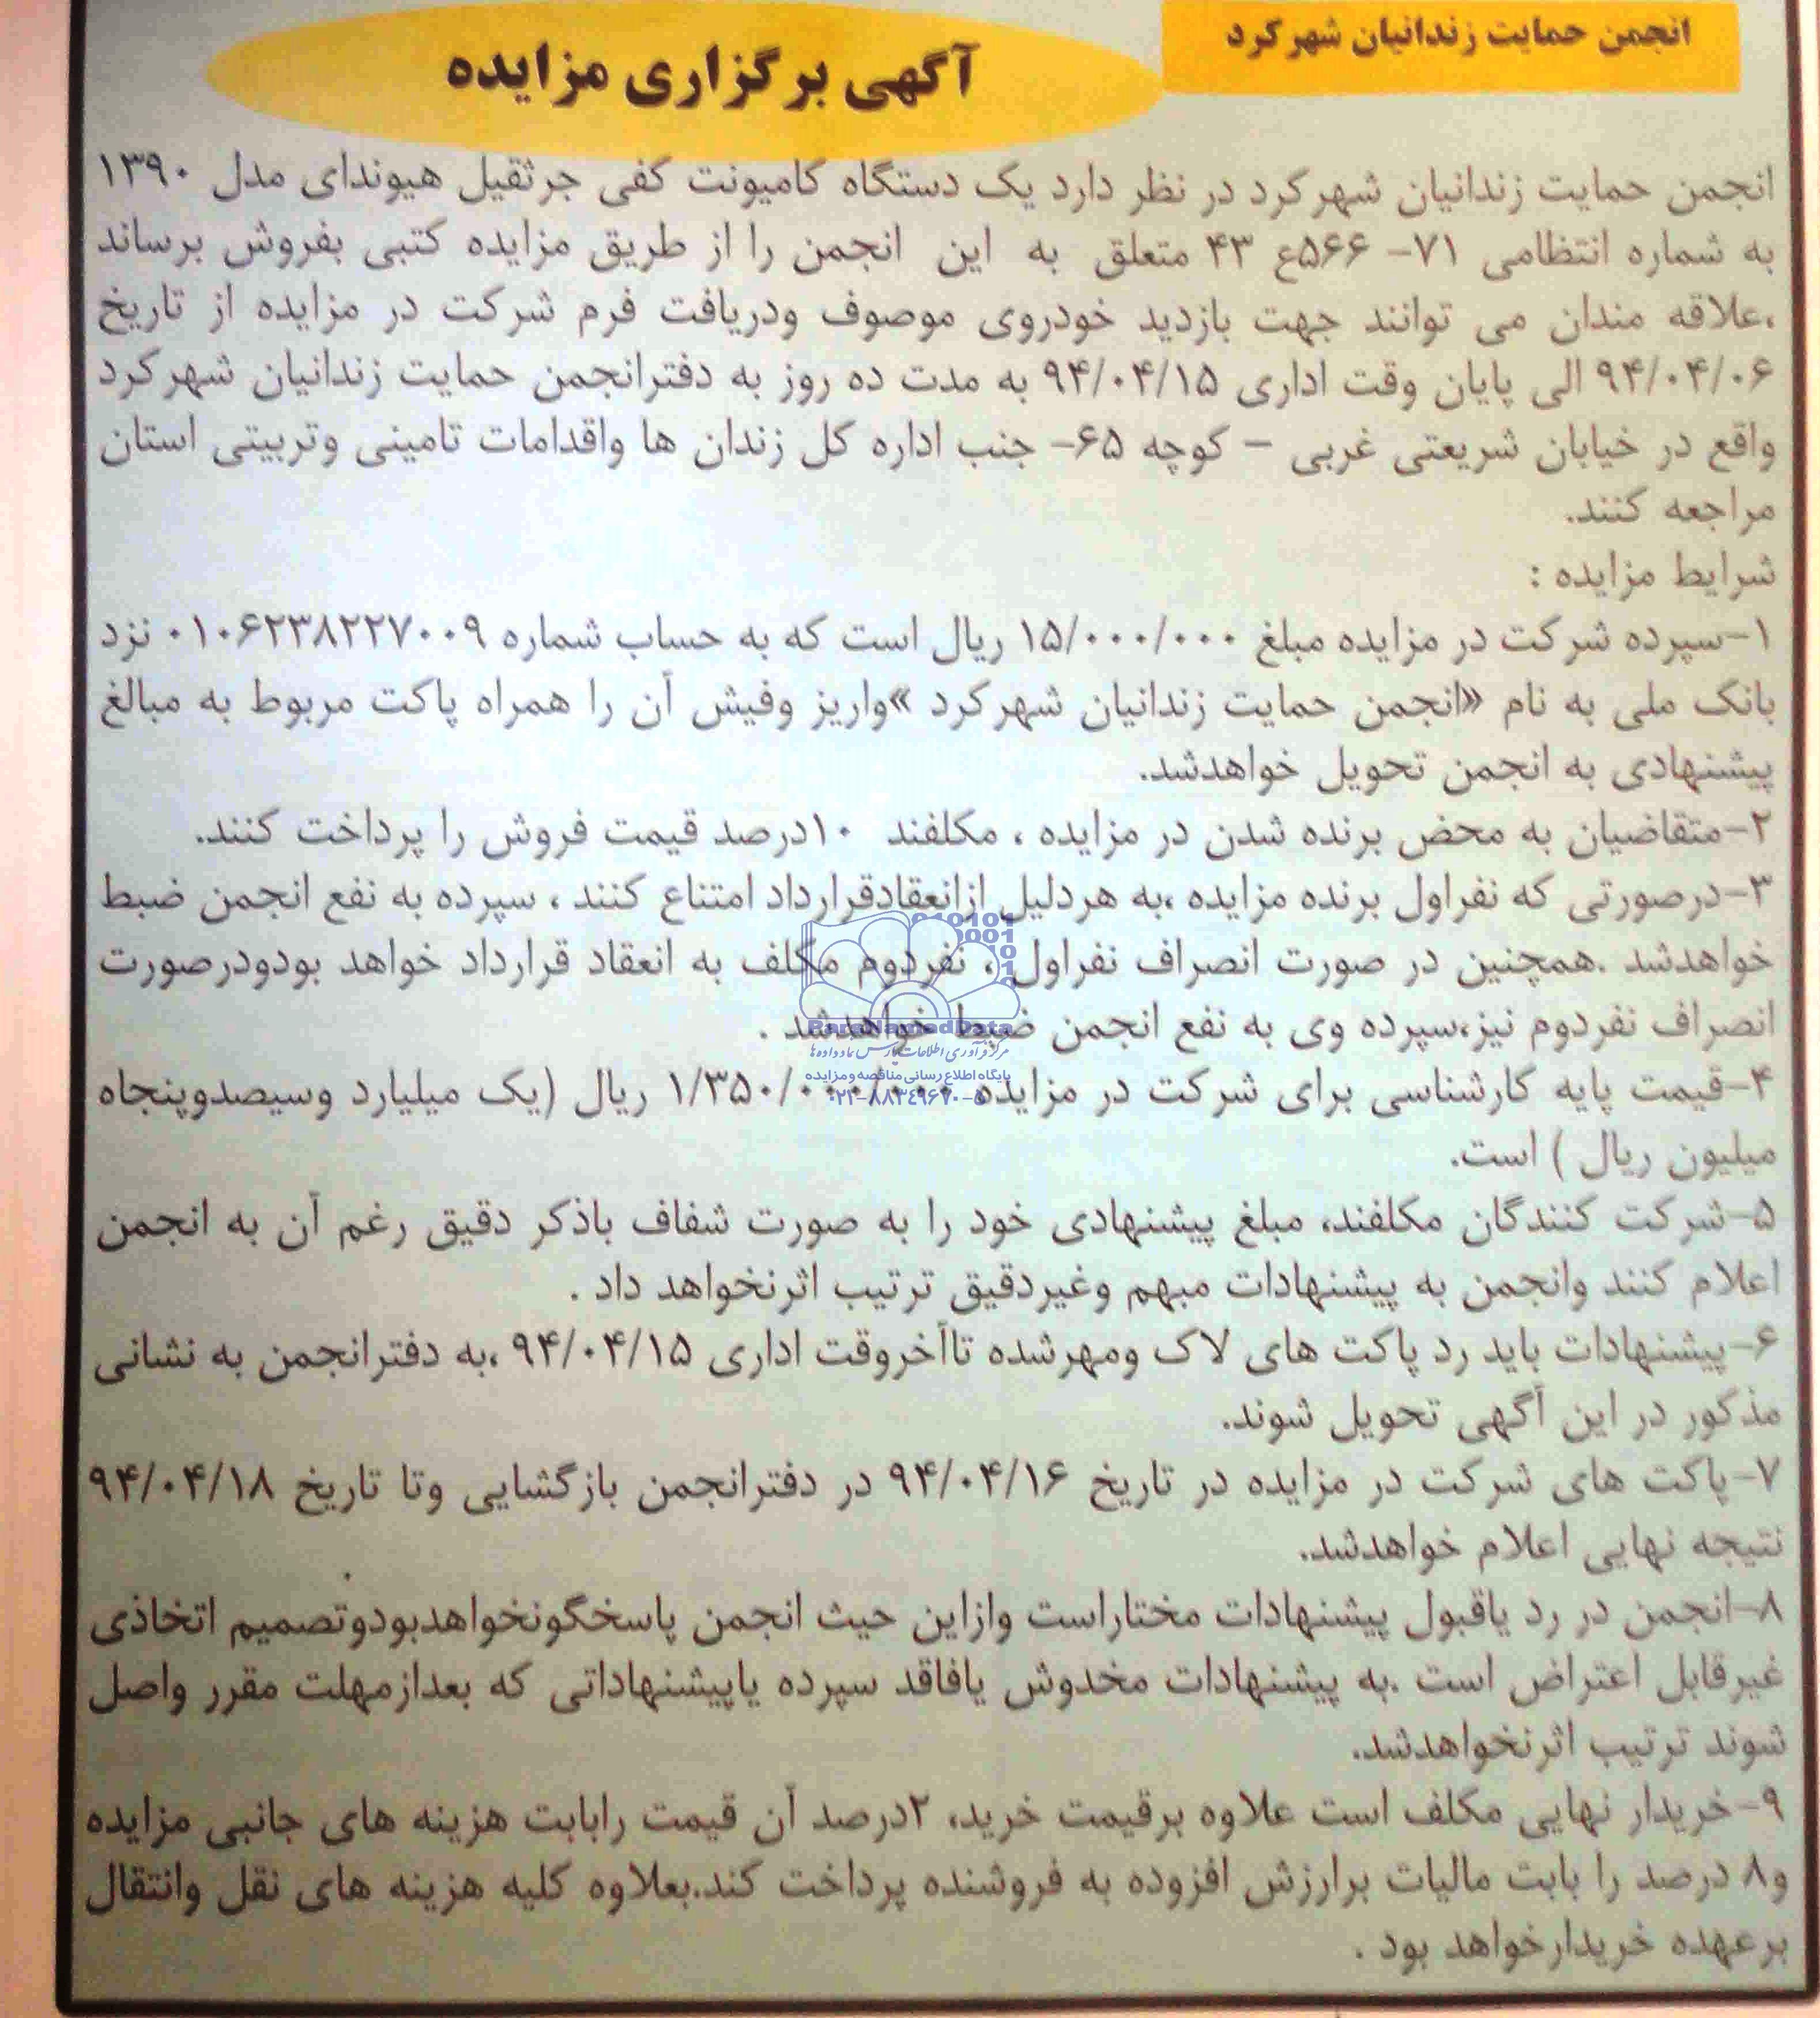 انجمن حمایت زندانیان شهرکرد
آگهی برگزاری مزایده
انجمن حمایت زندانیان شهرکرد در نظر دارد یک دستگاه کامیونت کفی جرثقیل هیوندای مدل ۱۳۹۰
به شماره انتظامی ۷۱- ۵۶۶ع ۴۳ متعلق به این انجمن را از طریق مزایده کتبی بفروش برساند
،علاقه مندان می توانند جهت بازدید خودروی موصوف ودریافت فرم شرکت در مزایده از تاریخ
۹۴/۰۴/۰۶ الی پایان وقت اداری ۹۴/۰۴/۱۵ به مدت ده روز به دفترانجمن حمایت زندانیان شهرکرد
واقع در خیابان شریعتی غربی – کوچه ۶۵- جنب اداره کل زندان ها واقدامات تامینی وتربیتی استان
مراجعه کنند.
شرایط مزایده :
۱-سپرده شرکت در مزایده مبلغ ۱۵/۰۰۰/۰۰۰ ریال است که به حساب شماره ۰۱۰۶۲۳۸۲۲۷۰۰۹ نزد
بانک ملی به نام «انجمن حمایت زندانیان شهرکرد »واریز وفیش آن را همراه پاکت مربوط به مبالغ
پیشنهادی به انجمن تحویل خواهدشد.
۲-متقاضیان به محض برنده شدن در مزایده ، مکلفند ۱۰درصد قیمت فروش را پرداخت کنند.
۳-درصورتی که نفراول برنده مزایده ،به هردلیل ازانعقادقرارداد امتناع کنند ، سپرده به نفع انجمن ضبط
خواهدشد .همچنین در صورت انصراف نفراول ، نفردوم مکلف به انعقاد قرارداد خواهد بودودرصورت
انصراف نفردوم نیز،سپرده وی به نفع انجمن ضبط خواهدشد .
ParsNamadData
مرکز فرآوری اطلاعات پارس نماد داده ها
پایگاه اطلاع رسانی مناقصه و مزایده
۰۲۱-۸۸۳۴۹۶۷۰-۵
۴-قیمت پایه کارشناسی برای شرکت در مزایده ۱/۳۵۰/۰۰۰/۰۰۰ ریال (یک میلیارد وسیصدوپنجاه
میلیون ریال ) است.
۵-شرکت کنندگان مکلفند، مبلغ پیشنهادی خود را به صورت شفاف باذکر دقیق رغم آن به انجمن
اعلام کنند وانجمن به پیشنهادات مبهم وغیردقیق ترتیب اثرنخواهد داد .
۶-پیشنهادات باید رد پاکت های لاک ومهرشده تاآخروقت اداری ۹۴/۰۴/۱۵ ،به دفترانجمن به نشانی
مذکور در این آگهی تحویل شوند.
۷-پاکت های شرکت در مزایده در تاریخ ۹۴/۰۴/۱۶ در دفترانجمن بازگشایی وتا تاریخ ۹۴/۰۴/۱۸
نتیجه نهایی اعلام خواهدشد.
۸-انجمن در رد یاقبول پیشنهادات مختاراست وازاین حیث انجمن پاسخگونخواهدبودوتصمیم اتخاذی
غیرقابل اعتراض است .به پیشنهادات مخدوش یافاقد سپرده یاپیشنهاداتی که بعدازمهلت مقرر واصل
شوند ترتیب اثرنخواهدشد.
۹-خریدار نهایی مکلف است علاوه برقیمت خرید، ۲درصد آن قیمت رابابت هزینه های جانبی مزایده
و۸ درصد را بابت مالیات برارزش افزوده به فروشنده پرداخت کند.بعلاوه کلیه هزینه های نقل وانتقال
برعهده خریدارخواهد بود .